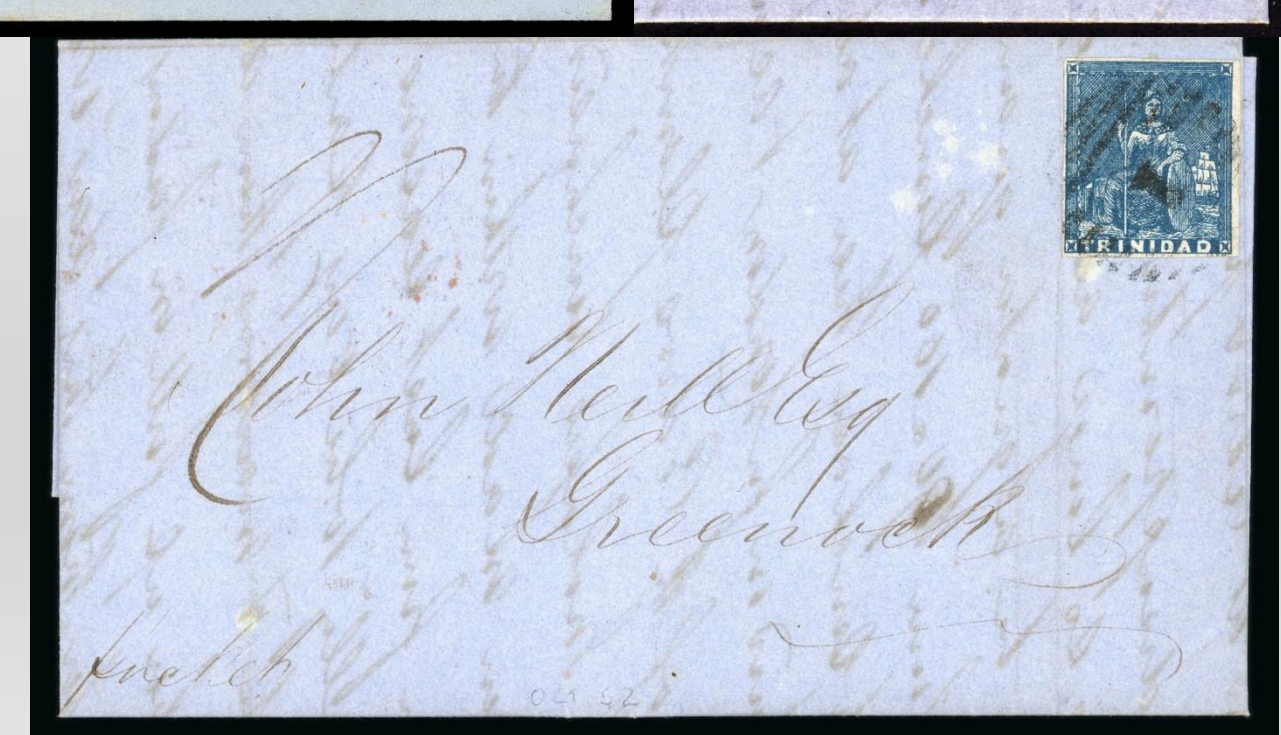 TRINIDAD
John Neill Esq
Greenock
packet
OCT 52